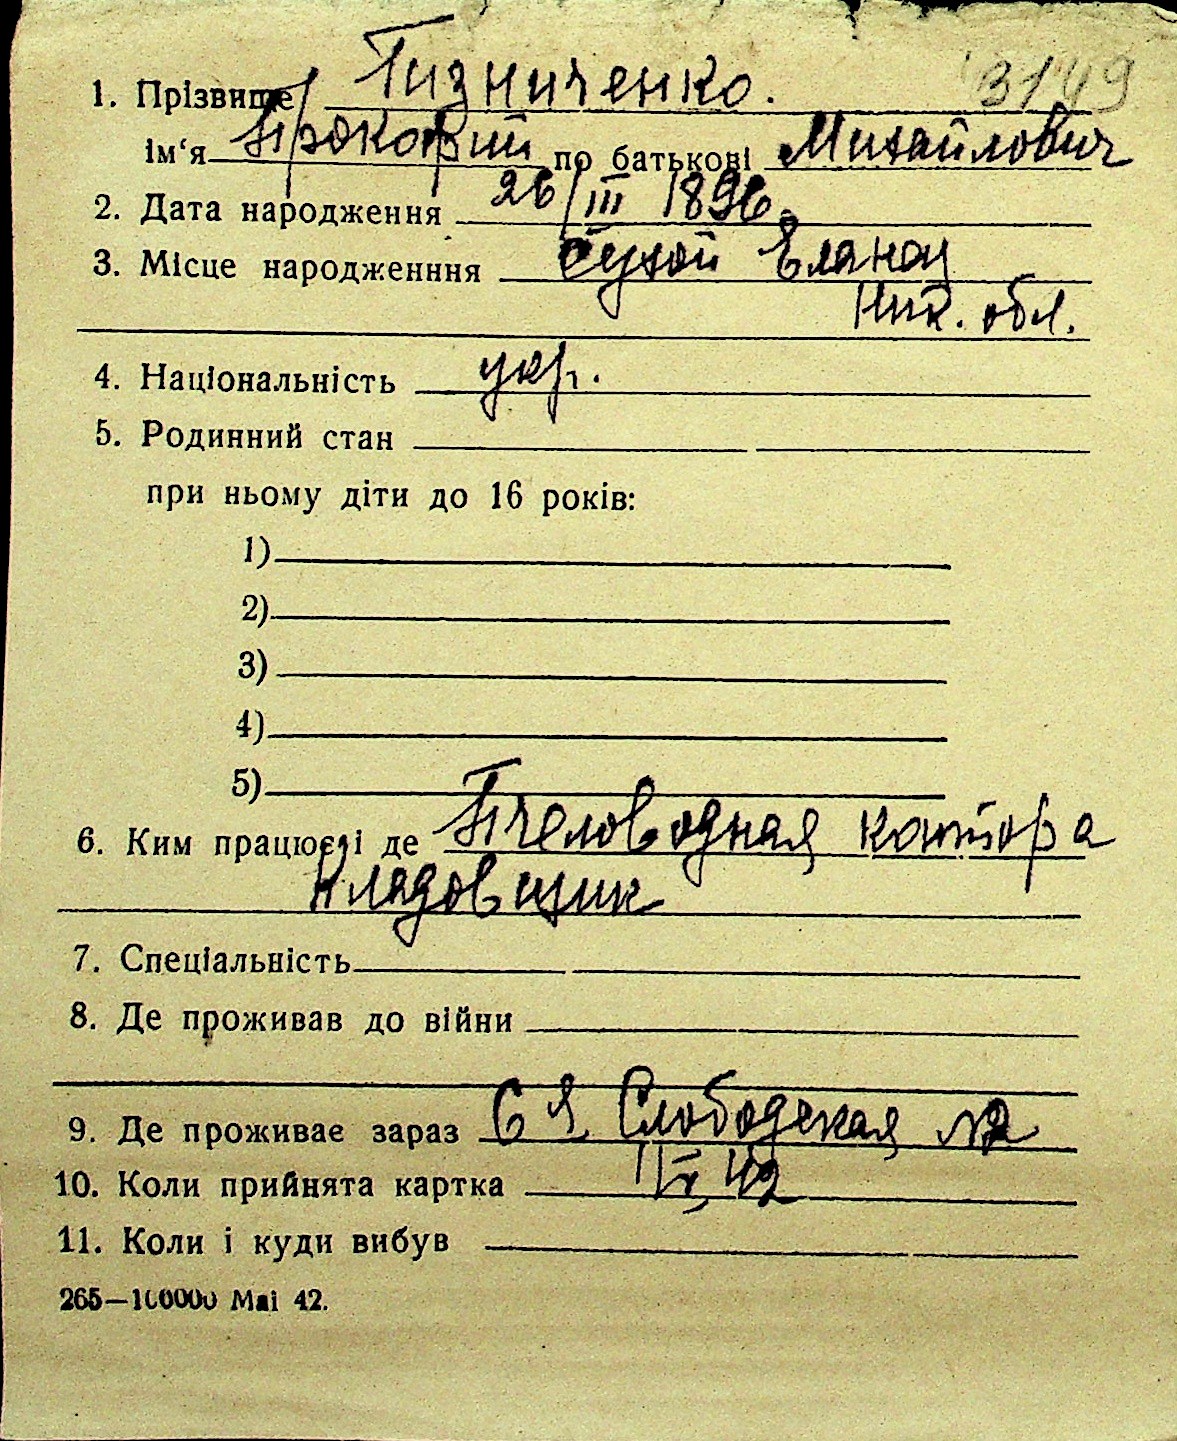 3149
1. Прізвище Гизниченко.
ім‘я Прокофий по батькові Михайлович
2. Дата народження 26/III 1896.
3. Місце народженння Сухой Еланец
Ник. обл.
4. Національність укр.
5. Родинний стан
при ньому діти до 16 років:
1)
2)
3)
4)
5)
6. Ким працює і де Пчеловодная контора
кладовщик
7. Спеціальність
8. Де проживав до війни
9. Де проживає зараз 6 я Слободская №2
10. Коли прийнята картка 42
11. Коли і куди вибув
265—100000 Маі 42.